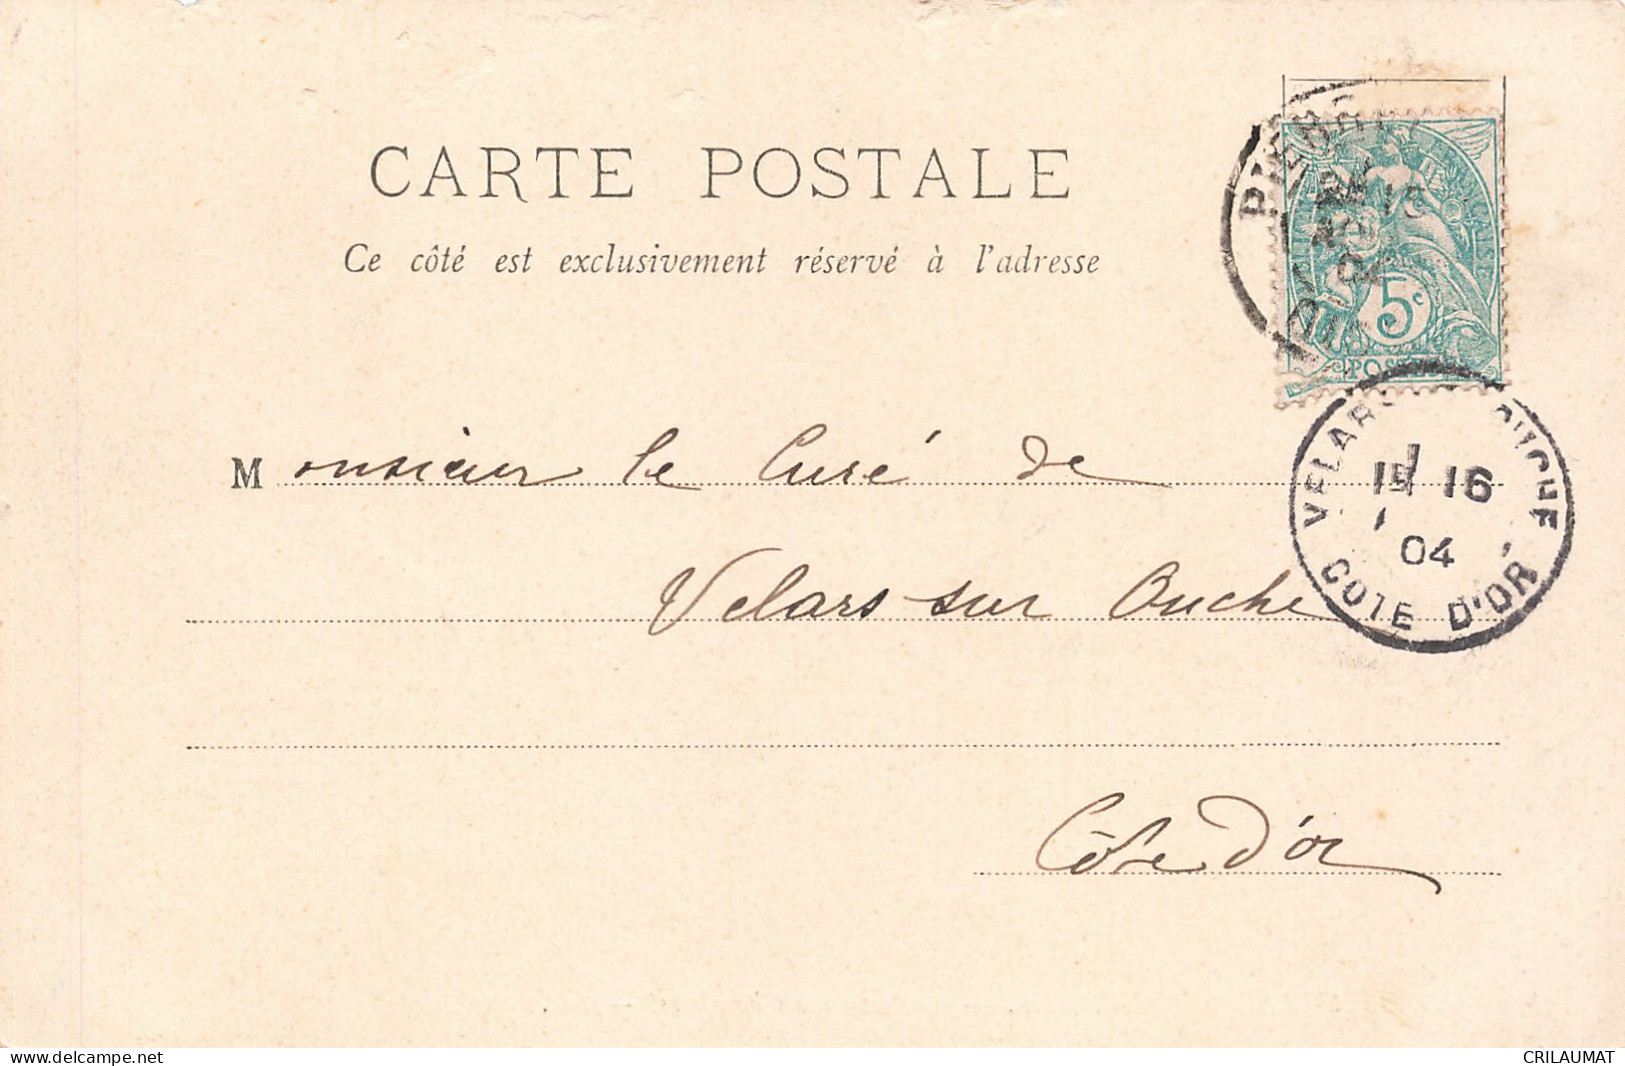 CARTE POSTALE
Ce côté est exclusivement réservé à l'adresse
5c
POSTES
Monsieur le Curé de
VELARS OUCHE
15 16
04
COTE D'OR
Velars-sur Ouche
Côte d'or
delcampe.net
CRILAUMAT